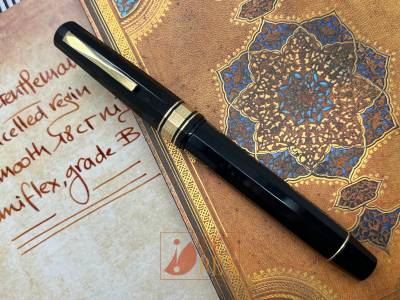 entleman
celled resin
mooth 18 ct
miflex, grade B